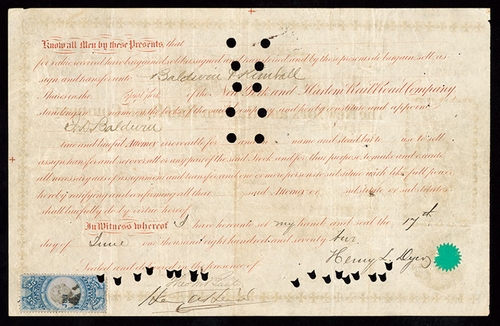 Know all Men by these Presents, that
for value received have bargained, sold, assigned and transferred and by these presents do bargain, sell, as
sign and transfer unto Baldwin & Kimball
Shares in the Capital Stock of the New York and Harlem Rail Road Company
standing in name on the books of the said Company and hereby constitute and appoint
Baldwin
true and lawful Attorney irrevocable for and in name and stead but to use to sell
assign transfer and set over all or any part of the said Stock and for that purpose to make and execute
all necessary acts of assignment and transfer and one or more persons to substitute with like full power
hereby ratifying and confirming all that said Attorney or substitute or substitutes
shall lawfully do by virtue hereof
In Witness whereof I have hereunto set my hand and seal the 17th
day of June one thousand eight hundred and seventy two
Henry L Dyer
Sealed and delivered in the presence of